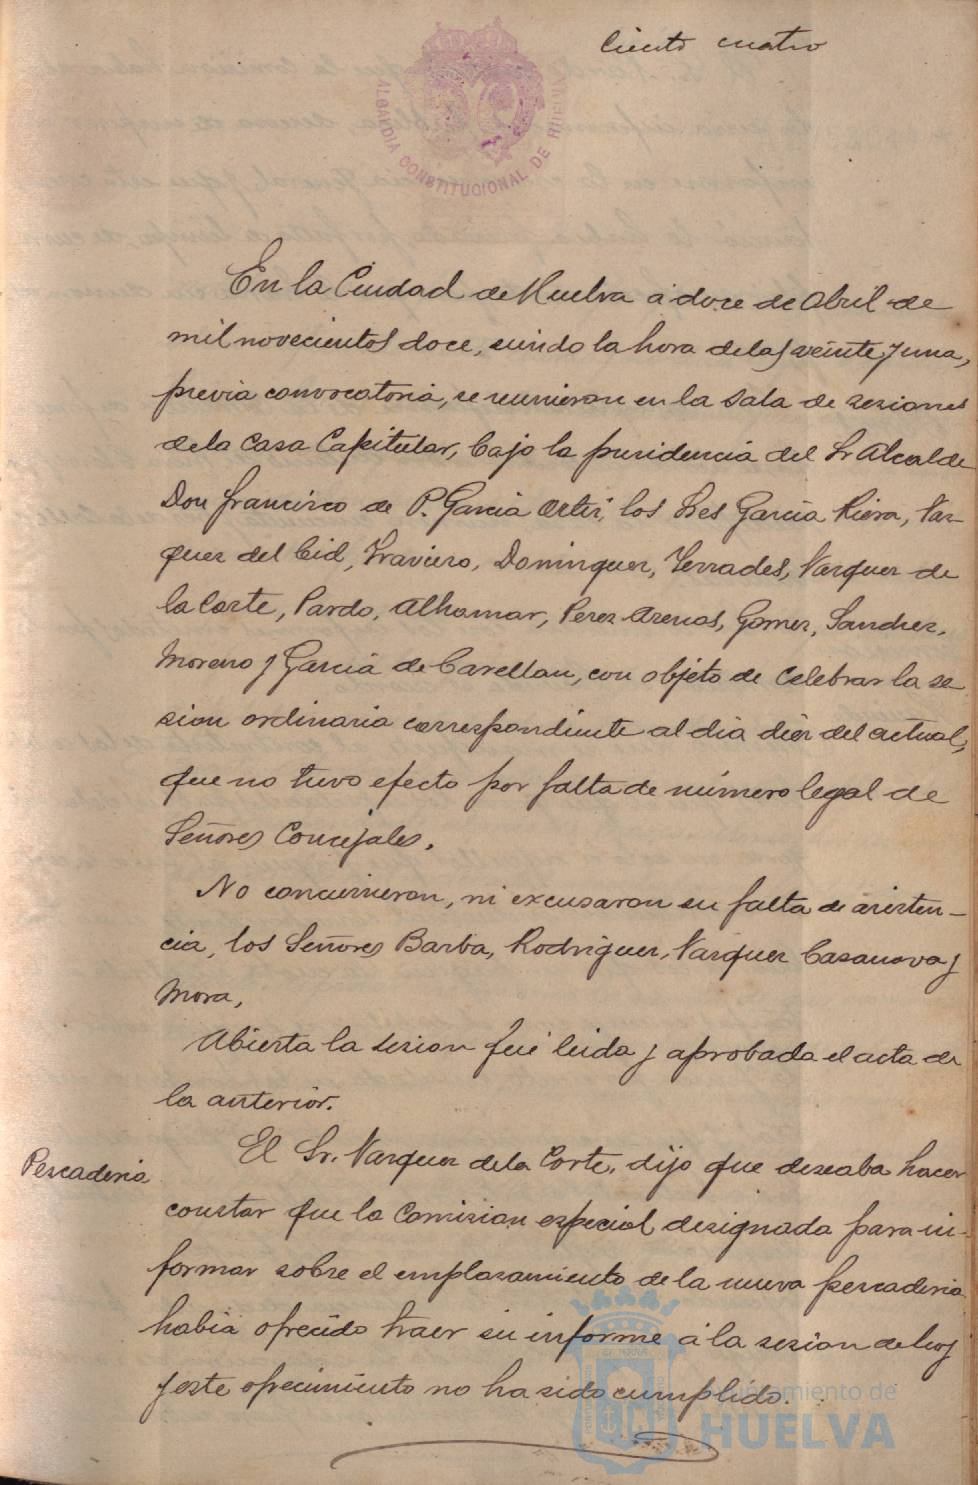 Ciento cuatro
ALCALDIA CONSTITUCIONAL DE HUELVA
En la Ciudad de Huelva á doce de Abril de
mil novecientos doce, siendo la hora de las veinte y una,
previa convocatoria, se reunieron en la Sala de sesiones
de la Casa Capitular, bajo la presidencia del Sr Alcalde
Don Francisco de P. Garcia Ortiz, los Sres Garcia Riera, Vaz-
quez del Cid, Traviero, Dominguez, Terrades, Vazquez de
la Corte, Pardo, Alhamar, Perez Arenas, Gomez, Sanchez,
Moreno y Garcia de Cavellan, con objeto de celebrar la se
sion ordinaria correspondiente al dia diez del actual,
que no tuvo efecto por falta de número legal de
Señores Concejales.
No concurrieron, ni excusaron su falta de asisten-
cia, los Señores Barba, Rodriguez, Vazquez Casanova y
Mora,
Abierta la sesion fué leida y aprobada el acta de
la anterior.
Pescaderia
El Sr. Vazquez de la Corte, dijo que deseaba hacer
constar que la Comision especial designada para in-
formar sobre el emplazamiento de la nueva pescaderia
habia ofrecido traer su informe á la sesion de hoy
y este ofrecimiento no ha sido cumplido.
Ayuntamiento de
HUELVA